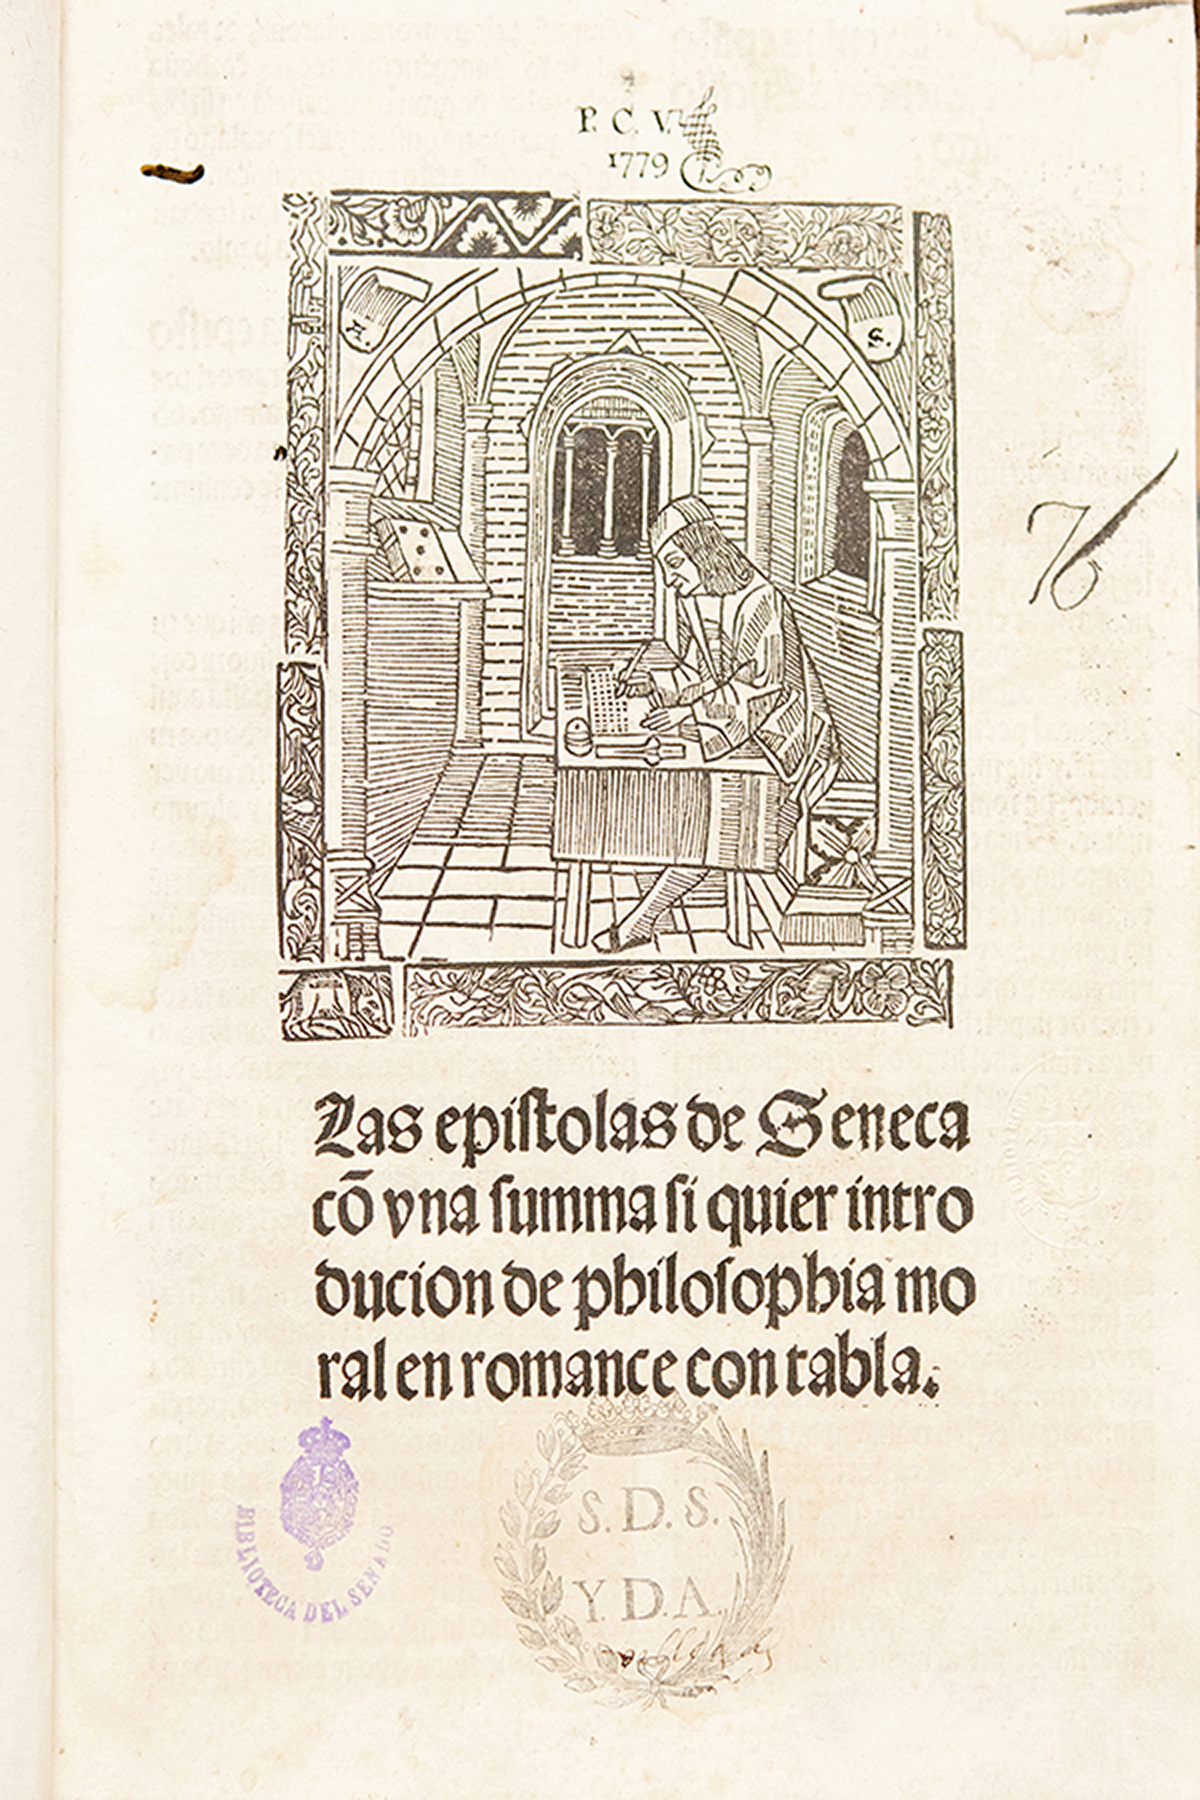 P. C. V.
1779
A.
S.
Las epiſtolas de Seneca
cõ vna ſumma ſi quier intro
ducion de philoſophia mo
ral en romance con tabla.
S. D. S.
Y. D. A.
BIBLIOTECA DEL SENADO